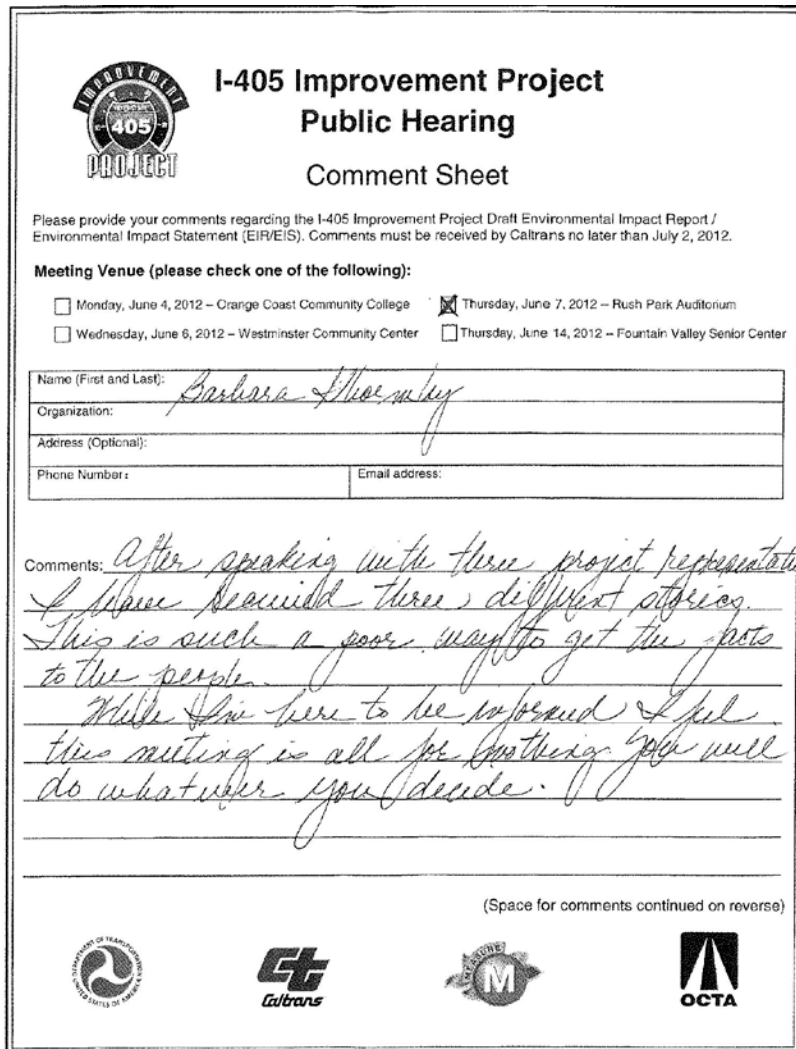 IMPROVEMENT
405
PROJECT
I-405 Improvement Project
Public Hearing
Comment Sheet
Please provide your comments regarding the I-405 Improvement Project Draft Environmental Impact Report /
Environmental Impact Statement (EIR/EIS). Comments must be received by Caltrans no later than July 2, 2012.
Meeting Venue (please check one of the following):
Monday, June 4, 2012 – Orange Coast Community College
Thursday, June 7, 2012 – Rush Park Auditorium
Wednesday, June 6, 2012 – Westminster Community Center
Thursday, June 14, 2012 – Fountain Valley Senior Center
Name (First and Last): Barbara
Organization:
Address (Optional):
Phone Number:
Email address:
Comments: After speaking with three project representati
I have received three, different stories.
This is such a poor way to get the facts
to the people.
While I'm here to be informed I feel
this meeting is all for nothing. You will
do whatever you decide.
(Space for comments continued on reverse)
DEPARTMENT OF TRANSPORTATION
UNITED STATES OF AMERICA
Caltrans
MEASURE
M
OCTA